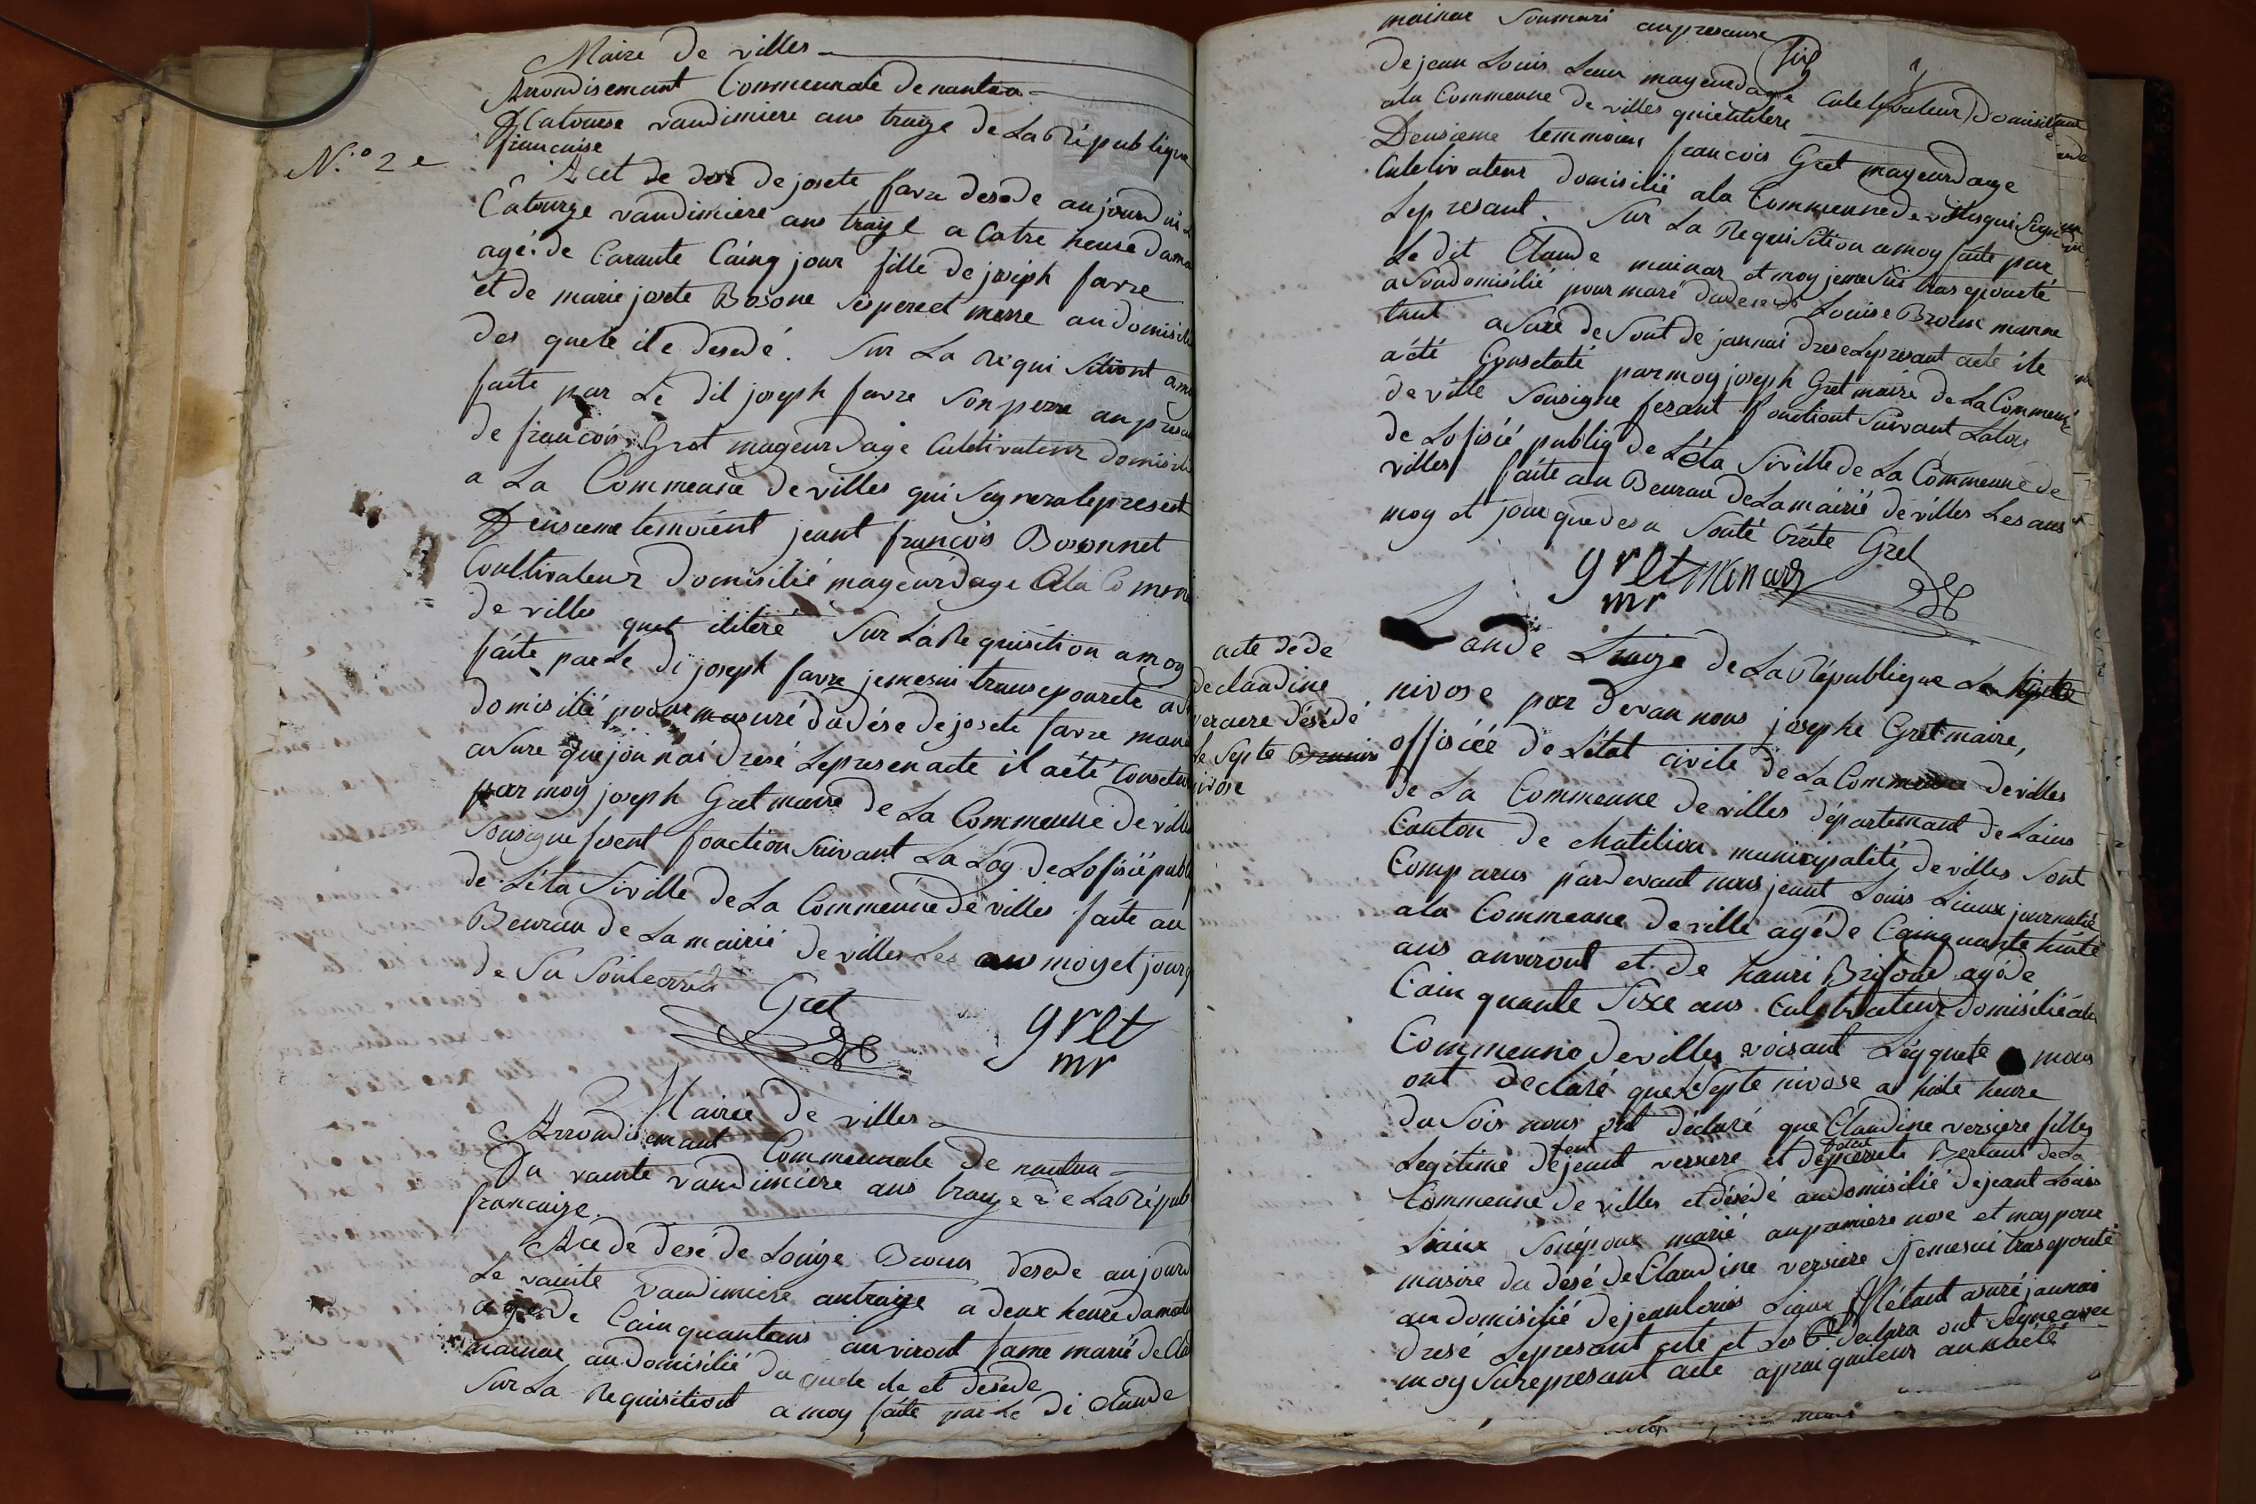 Maire de villes
Arrondisemant Commeunale de nantua
N.° 2e
Du Catourse vandimiere ans traize de La République
francaise
Act de dese de josete favre desede aujourdui le
Catourze vandimiere ans trayze a Catre heure dama
agé. de Carante Cainq jour fille de joseph favre
et de marie josete Bosone se pere et merre au domisile
des quele ile desedé. Sur La réqui Sitiont amo
faite par Le dit joseph favre Son perre anpresan
de francois Gret mageurdage Culetivateur domisilié
a La Commeune de villes qui Seynera le present
Deusieme temoient jeant francois Bosonnet
Coultivateur Domisilié mayeurdage ala Comeune
de ville quet ilitéré Sur La Requisition a moy
faite par Le di joseph favre jemesui transepourete a
domisilié pour masuré du dése de josete favre mane
asure que jou nai dresé Lepresen acte il a été Consetaté
par moy joseph Gret maire de La Commeune de ville
Sousigne fesent fonction Suivant La Loy de Lofisié public
de Léta Siville de La Commeune de villes faite au
Beurau de La mairié de villes Les ans moy et jour q
de Su
Gret
gret
mr
Mairée de villes
Arrondisemant Commeunale de nantua
Du vainte vandimiere ans traize de La Répub
francaize
Ace de desé de Louize Broun desede aujourd
Le vainte vandimiere antraize a deux heure damati
agé de Cainquantans anviront fame marié de Clau
mainar au domisilié du quele ele et desede
Sur La Requisitiont a moy faite par Le di Claude
mainar Soumari anpresance
de jean Louis Leau mayeurdage Culetivateur Domisilié
ala Commeune de villes qui etilitere
Deusieme temmoien francois Gret mayeurdage
Culetivateur domisilié ala Commeune de villes qui Signe
Le presant. Sur La Requisition amoy faite par
Le dit Claude mainar et moy jeme Sui transepourté
a Soudomisilié pour maré du dese de Louise Broune manne
tant asuré de Sont de jannai drese Lepresant acte ile
a été Consetaté par moy joseph Gret maire de La Commeune
de ville Sousigne fesant fonctiont Suivant Laloy
de Lofisié publiq de Léta Siville de La Commeune de
villes faite au Beurau de La mairié de villes Les ans
moy et jour que desu
Gret
gret mr
Minard
acte de de
de claudine
verciere désédé
Le Septe
nivose
Lande traize de La République Le Septe
nivose par devan nous josephe Gret maire,
offisiée de Létat civile de La Commeune de villes
de La Commeune de villes département de Lains
Canton de chatilion municipalité de villes Sont
Comparus pardevant nous jeant Louis Liaux journalié
ala Commeune de ville agé de Cainquante huite
ans anviront et de hanri Brifoud agé de
Cainquante Sixe ans Culetivateur domisilié ala
Commeune de villes voisant Léyquete nous
ont declaré que Le Septe nivose a huite heure
du Sois nous ont déclaré que Claudine versiere filles
Legitime de feut jeant versiere et de pierrete Bertant de La
Commeune de villes et désédé au domisilié de jeant Louis
Liaux Son époux marié anpremiere nose et moy pour
masure du désé de Claudine versiere jemesui transepouté
au domisilié de jeanlouis Liaux Métant asuré jannai
dresé Lepresant acte et Les declara ont Signe avec
moy Surepresant acte aprai quileur an naété